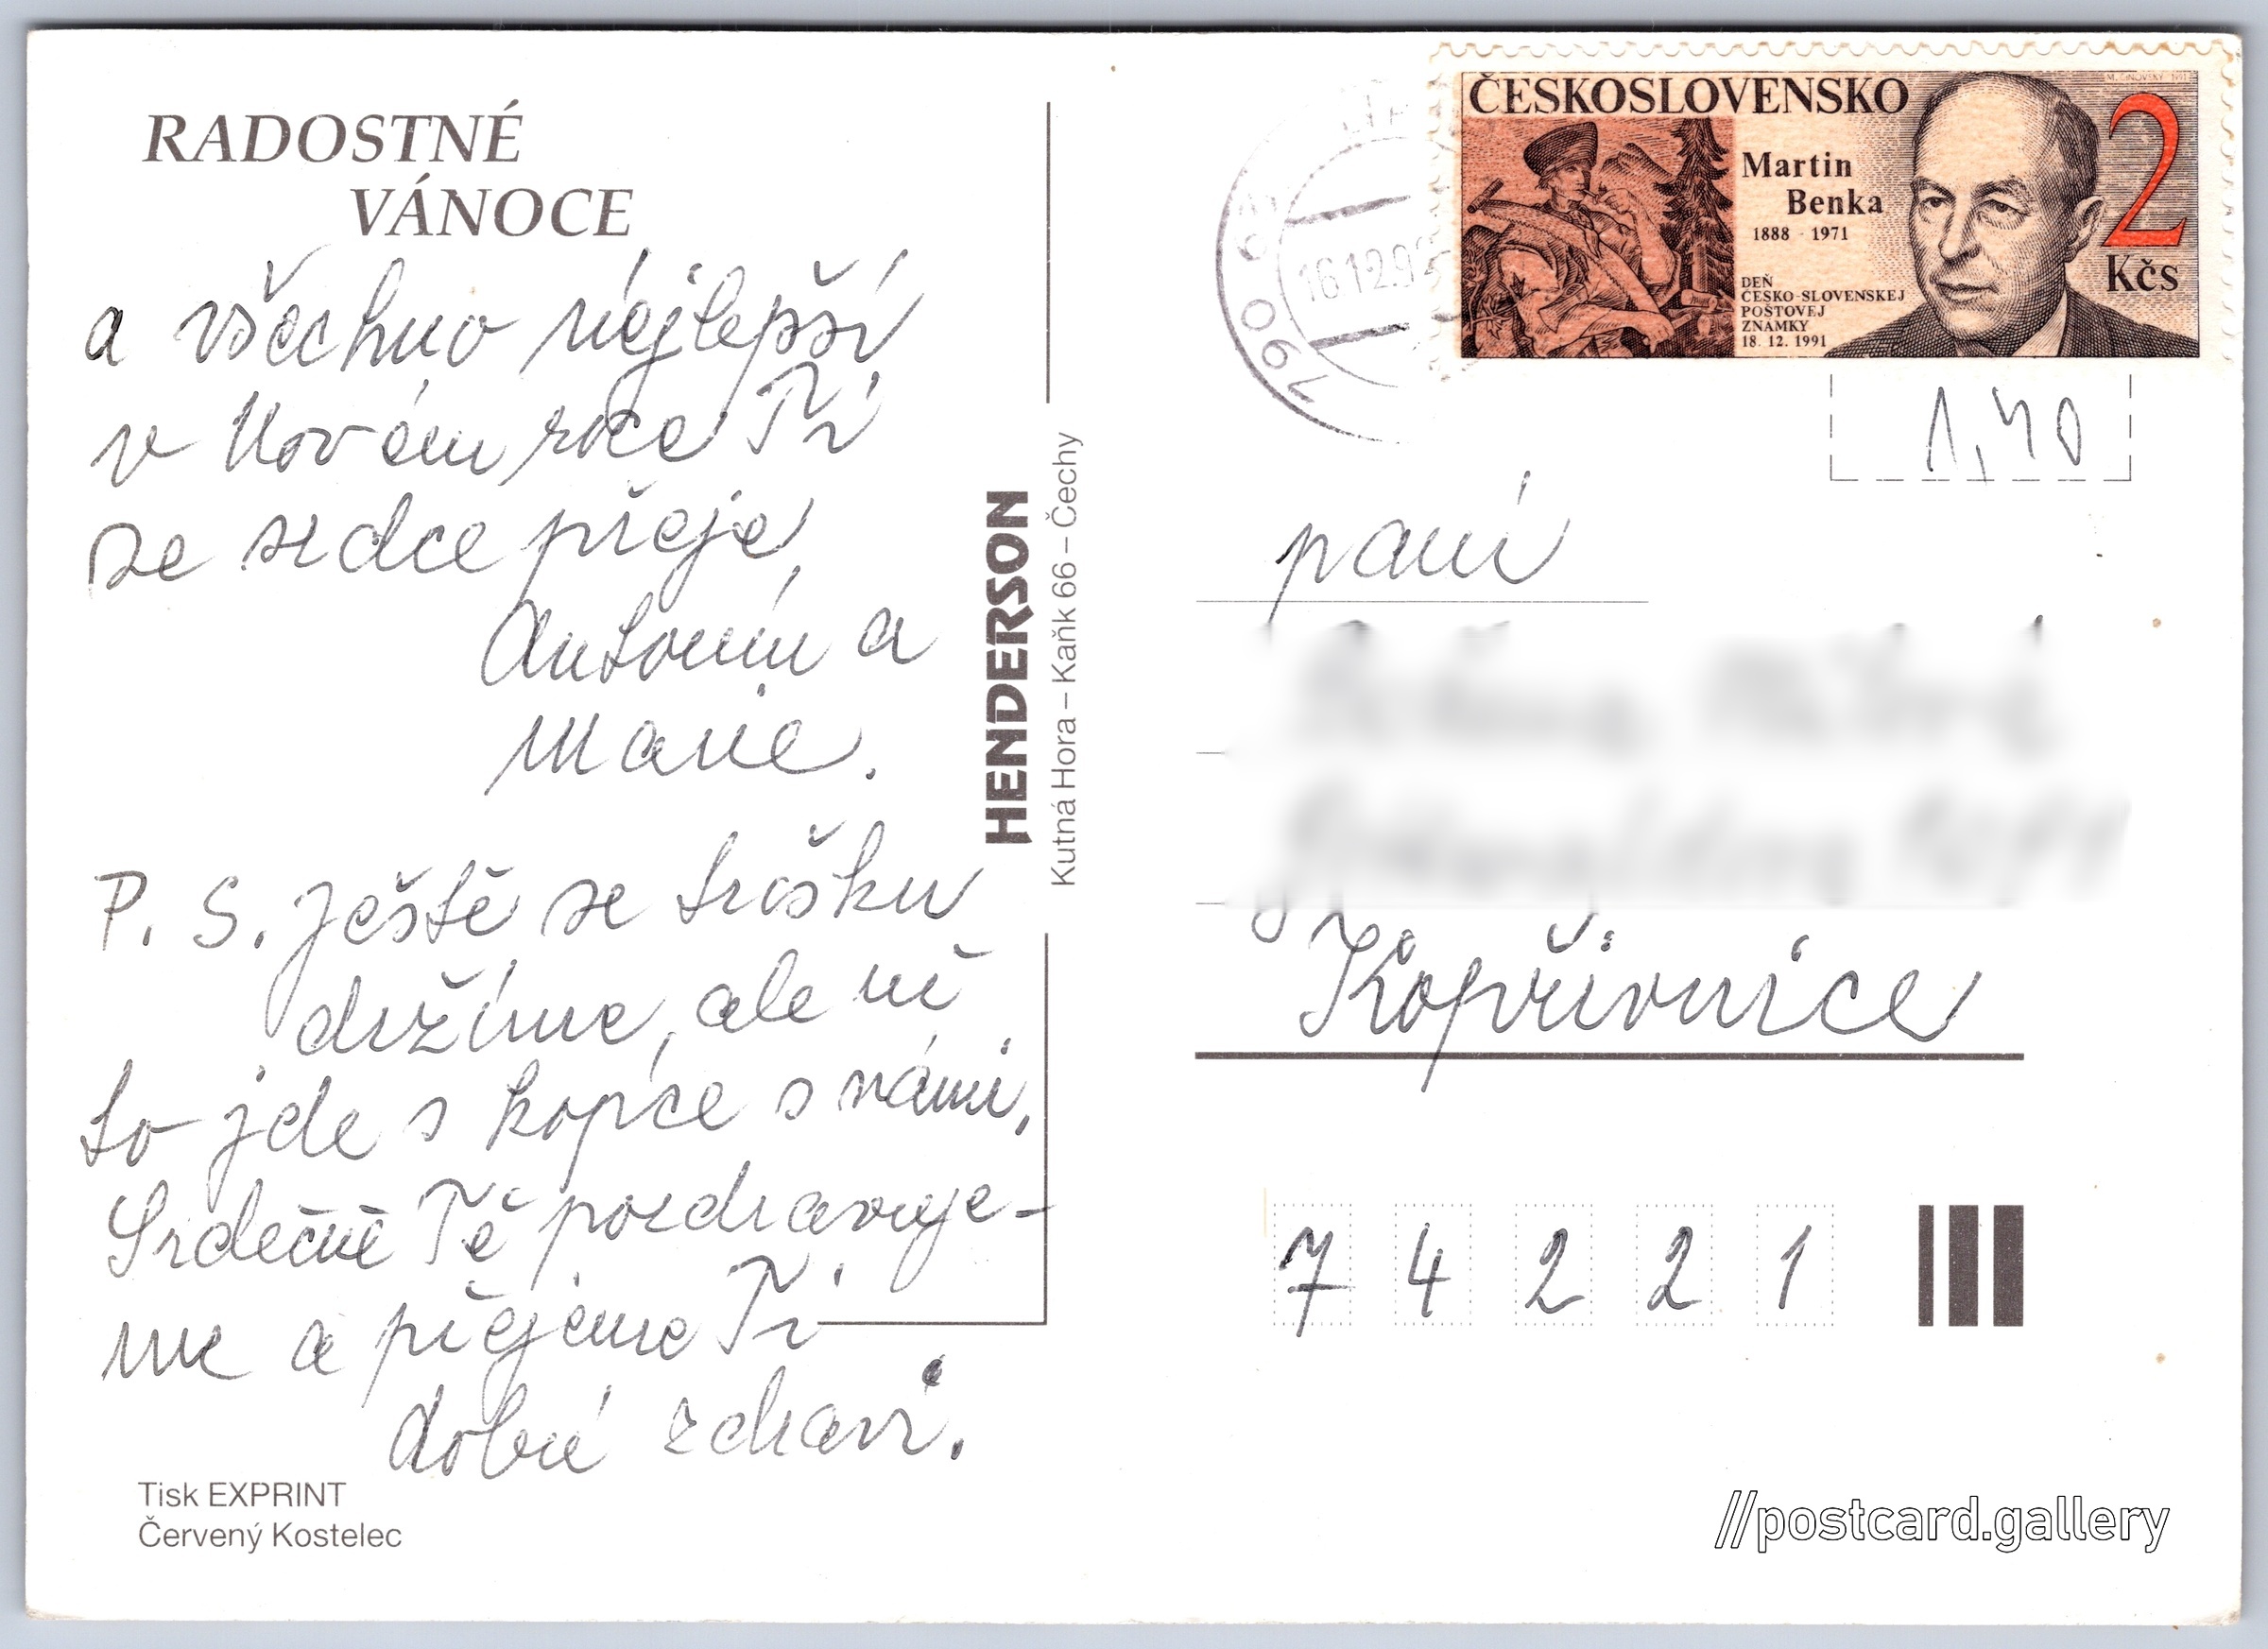 RADOSTNÉ
VÁNOCE
a všechno nejlepší
v Novém roce Ti
ze srdce přeje
Antonín a
Marie.
P. S. Ještě se trošku
držíme, ale už
to jde s kopce s námi.
Srdečně Tě pozdravuje-
me a přejeme Ti
dobré zdraví.
Tisk EXPRINT
Červený Kostelec
HENDERSON
Kutná Hora – Kaňk 66 – Čechy
790 69
16.12.9
ČESKOSLOVENSKO
Martin
Benka
1888 - 1971
DEŇ
ČESKO-SLOVENSKEJ
POŠTOVEJ
ZNÁMKY
18. 12. 1991
2
Kčs
1,40
paní
Kopřivnice
74221
//postcard.gallery